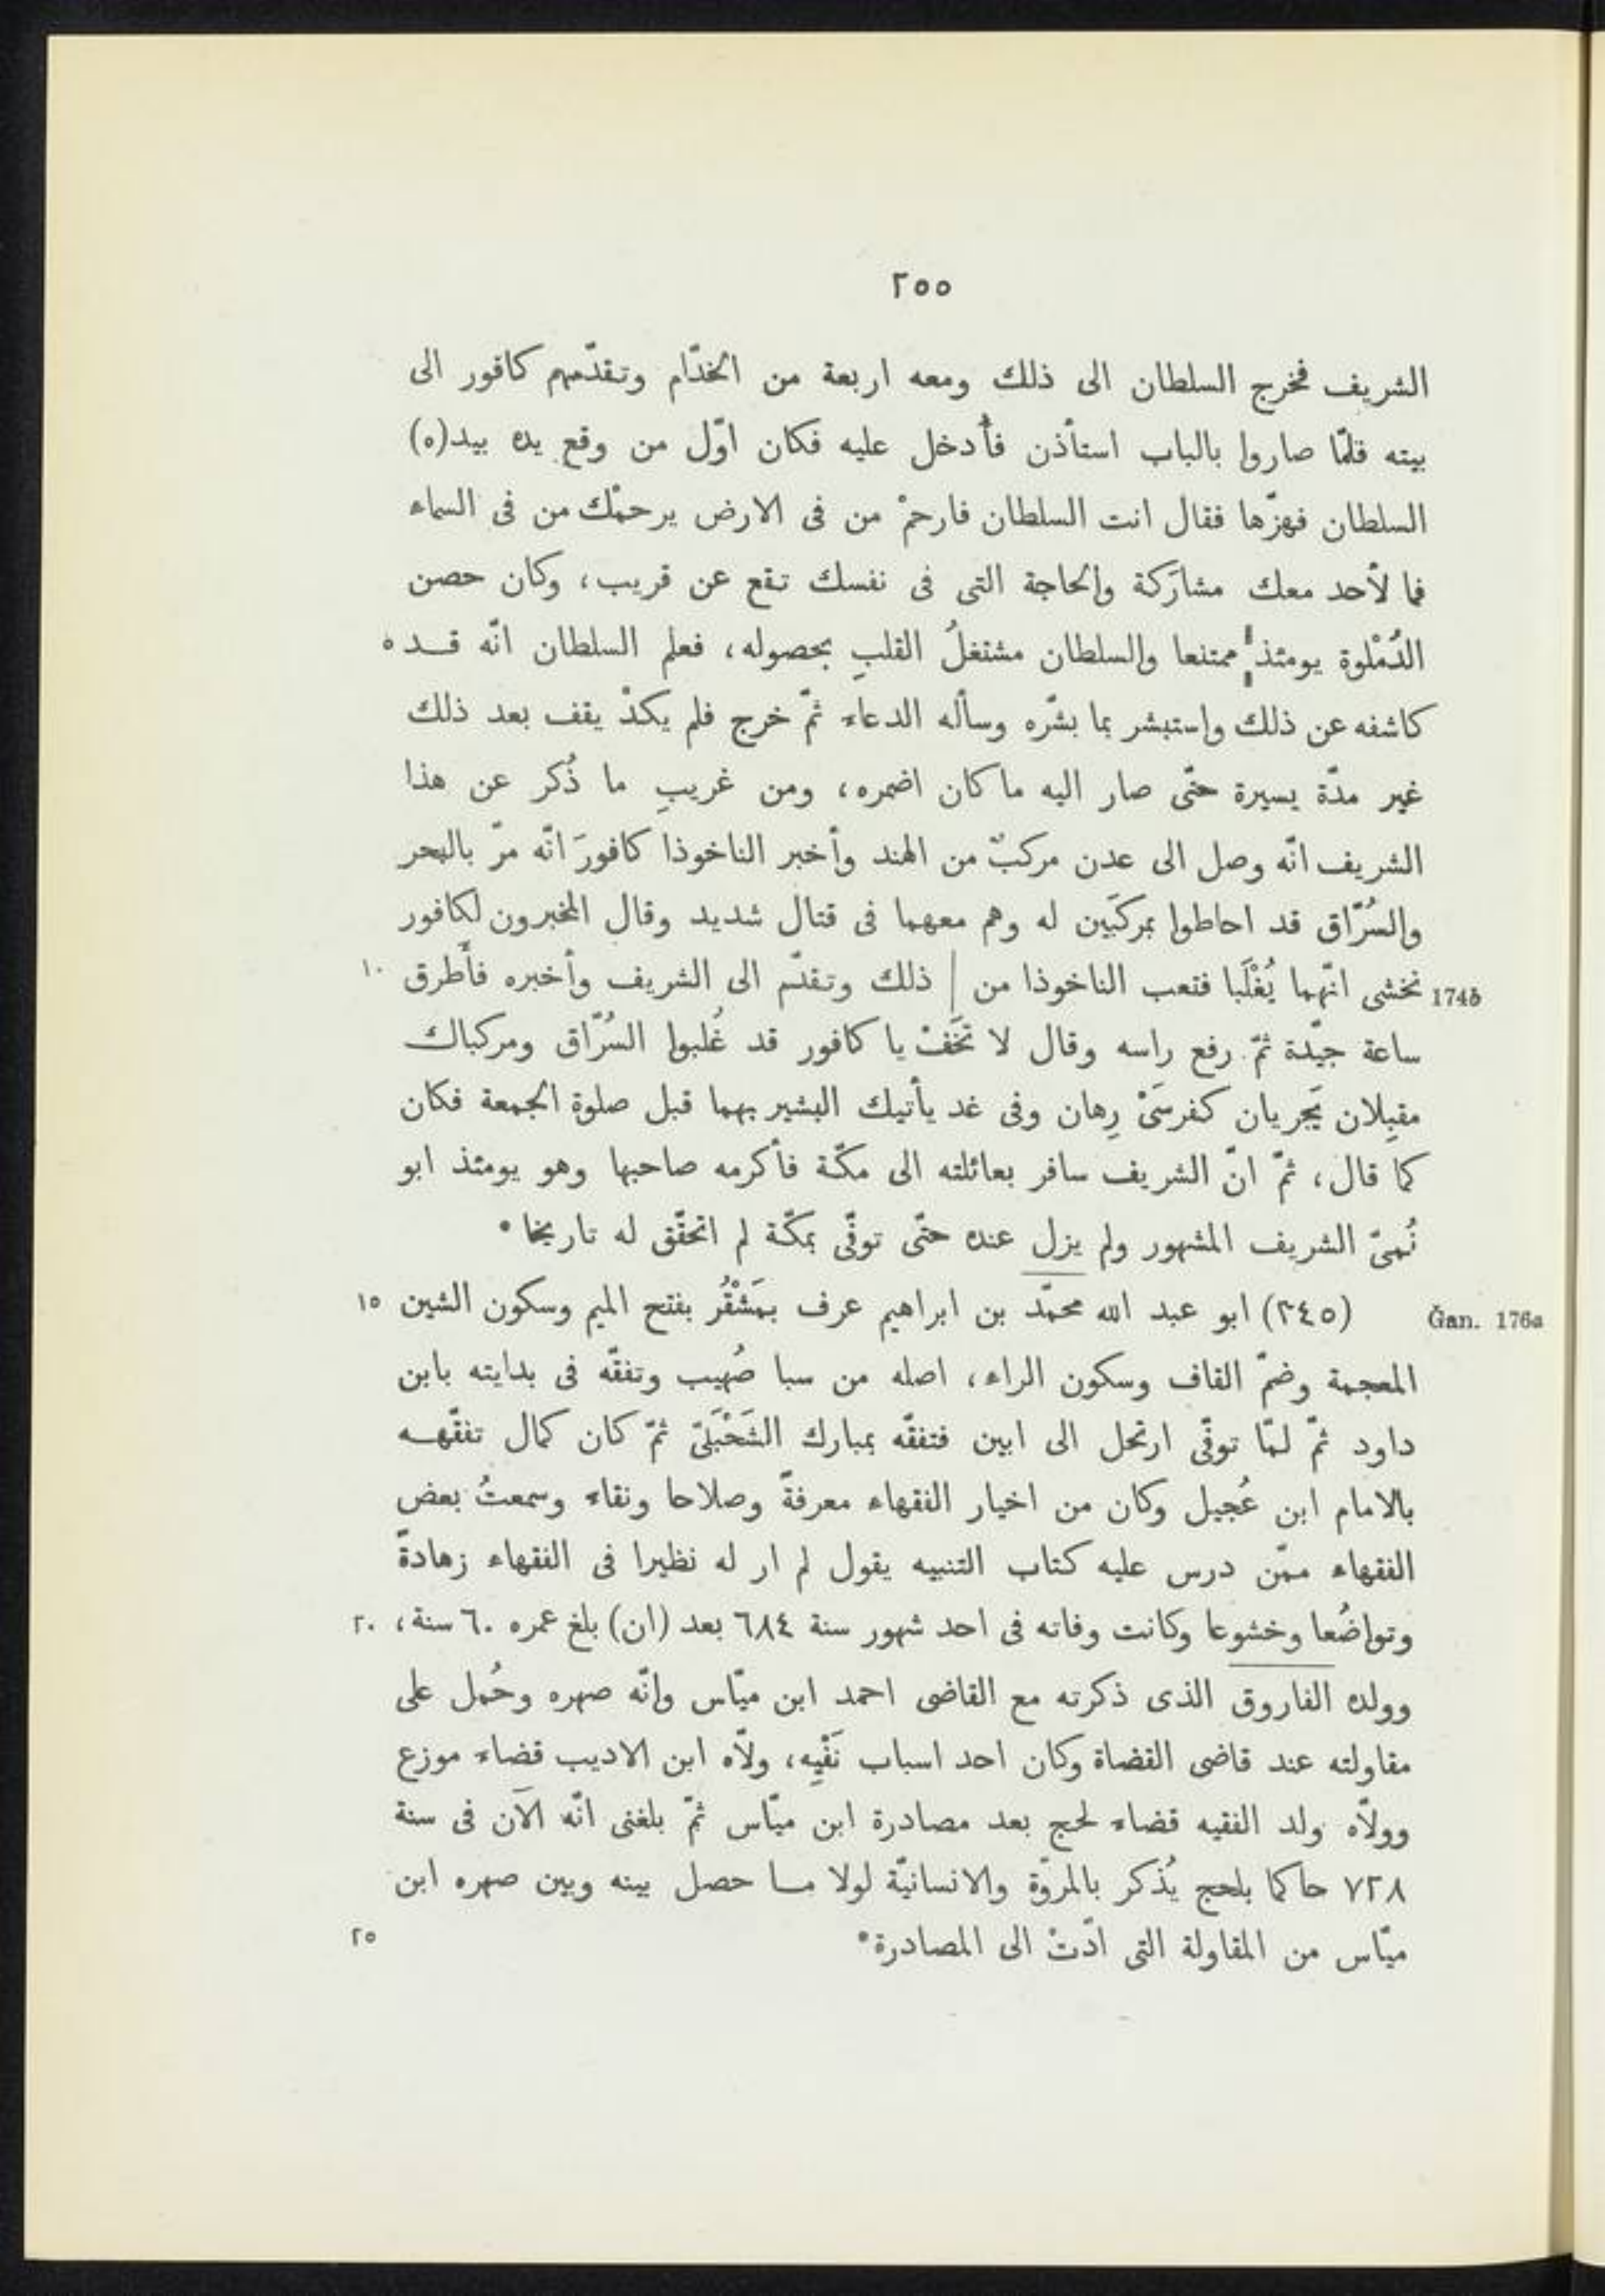 ٢٥٥
الشريف فخرج السلطان الى ذلك ومعه اربعة من الخدّام وتقدّمهم كافور الى
بيته فلمّا صاروا بالباب استأذن فأُدخل عليه فكان اوّل من وقع يده بيد(ه)
السلطان فهزّها فقال انت السلطان فارحمْ من فى الارض يرحمْك من فى السماء
فما لأحد معك مشارَكة والحاجة التى فى نفسك تقع عن قريب، وكان حصن
الدُمْلوة يومئذ ممتنعا والسلطان مشتغلُ القلبِ بحصوله، فعلم السلطان انّه قـد ٥
كاشفه عن ذلك واستبشر بما بشّره وسأله الدعاء ثمّ خرج فلم يكدْ يقف بعد ذلك
غير مدّة يسيرة حتّى صار اليه ما كان اضمره، ومن غريبِ ما ذُكر عن هذا
الشريف انّه وصل الى عدن مركبٌ من الهند وأخبر الناخوذا كافورَ انّه مرّ بالبحر
والسُرّاق قد احاطوا بمركبَين له وهم معهما فى قتال شديد وقال المخبرون لكافور
174b نخشى انّهما يُغْلَبا فتعب الناخوذا من | ذلك وتقدّم الى الشريف وأخبره فأَطرق ١٠
ساعة جيّدة ثمّ رفع راسه وقال لا تخَفْ يا كافور قد غُلبوا السُرّاق ومركباك
مقبِلان يَجريان كفرسَىْ رِهان وفى غد يأتيك البشير بهما قبل صلوة الجمعة فكان
كما قال، ثمّ انّ الشريف سافر بعائلته الى مكّة فأكرمه صاحبها وهو يومئذ ابو
نُمىّ الشريف المشهور ولم يزل عنده حتّى توفّى بمكّة لم اتحقّق له تاريخا •
Ǧan. 176a (٢٤٥) ابو عبد الله محمّد بن ابراهيم عرف بمَشْقُر بفتح الميم وسكون الشين ١٥
المعجمة وضمّ القاف وسكون الراء، اصله من سبا صُهيب وتفقّه فى بدايته بابن
داود ثمّ لمّا توفّى ارتحل الى ابين فتفقّه بمبارك الشَحْبَلَىّ ثمّ كان كمال تفقّهـه
بالامام ابن عُجيل وكان من اخيار الفقهاء معرفةً وصلاحا ونقاء وسمعتُ بعض
الفقهاء ممّن درس عليه كتاب التنبيه يقول لم ار له نظيرا فى الفقهاء زهادةً
وتواضُعا وخشوعا وكانت وفاته فى احد شهور سنة ٦٨٤ بعد (ان) بلغ عمره ٦٠ سنة، ٢٠
وولده الفاروق الذى ذكرته مع القاضى احمد ابن ميّاس وانّه صهره وحُمل على
مقاولته عند قاضى القضاة وكان احد اسباب نَفْيِه، ولّاه ابن الاديب قضاء موزع
وولّاه ولد الفقيه قضاء لحج بعد مصادرة ابن ميّاس ثمّ بلغنى انّه الآن فى سنة
٧٢٨ حاكما بلحج يُذكر بالمروّة والانسانيّة لولا مـا حصل بينه وبين صهره ابن
ميّاس من المقاولة التى ادّتْ الى المصادرة • ٢٥